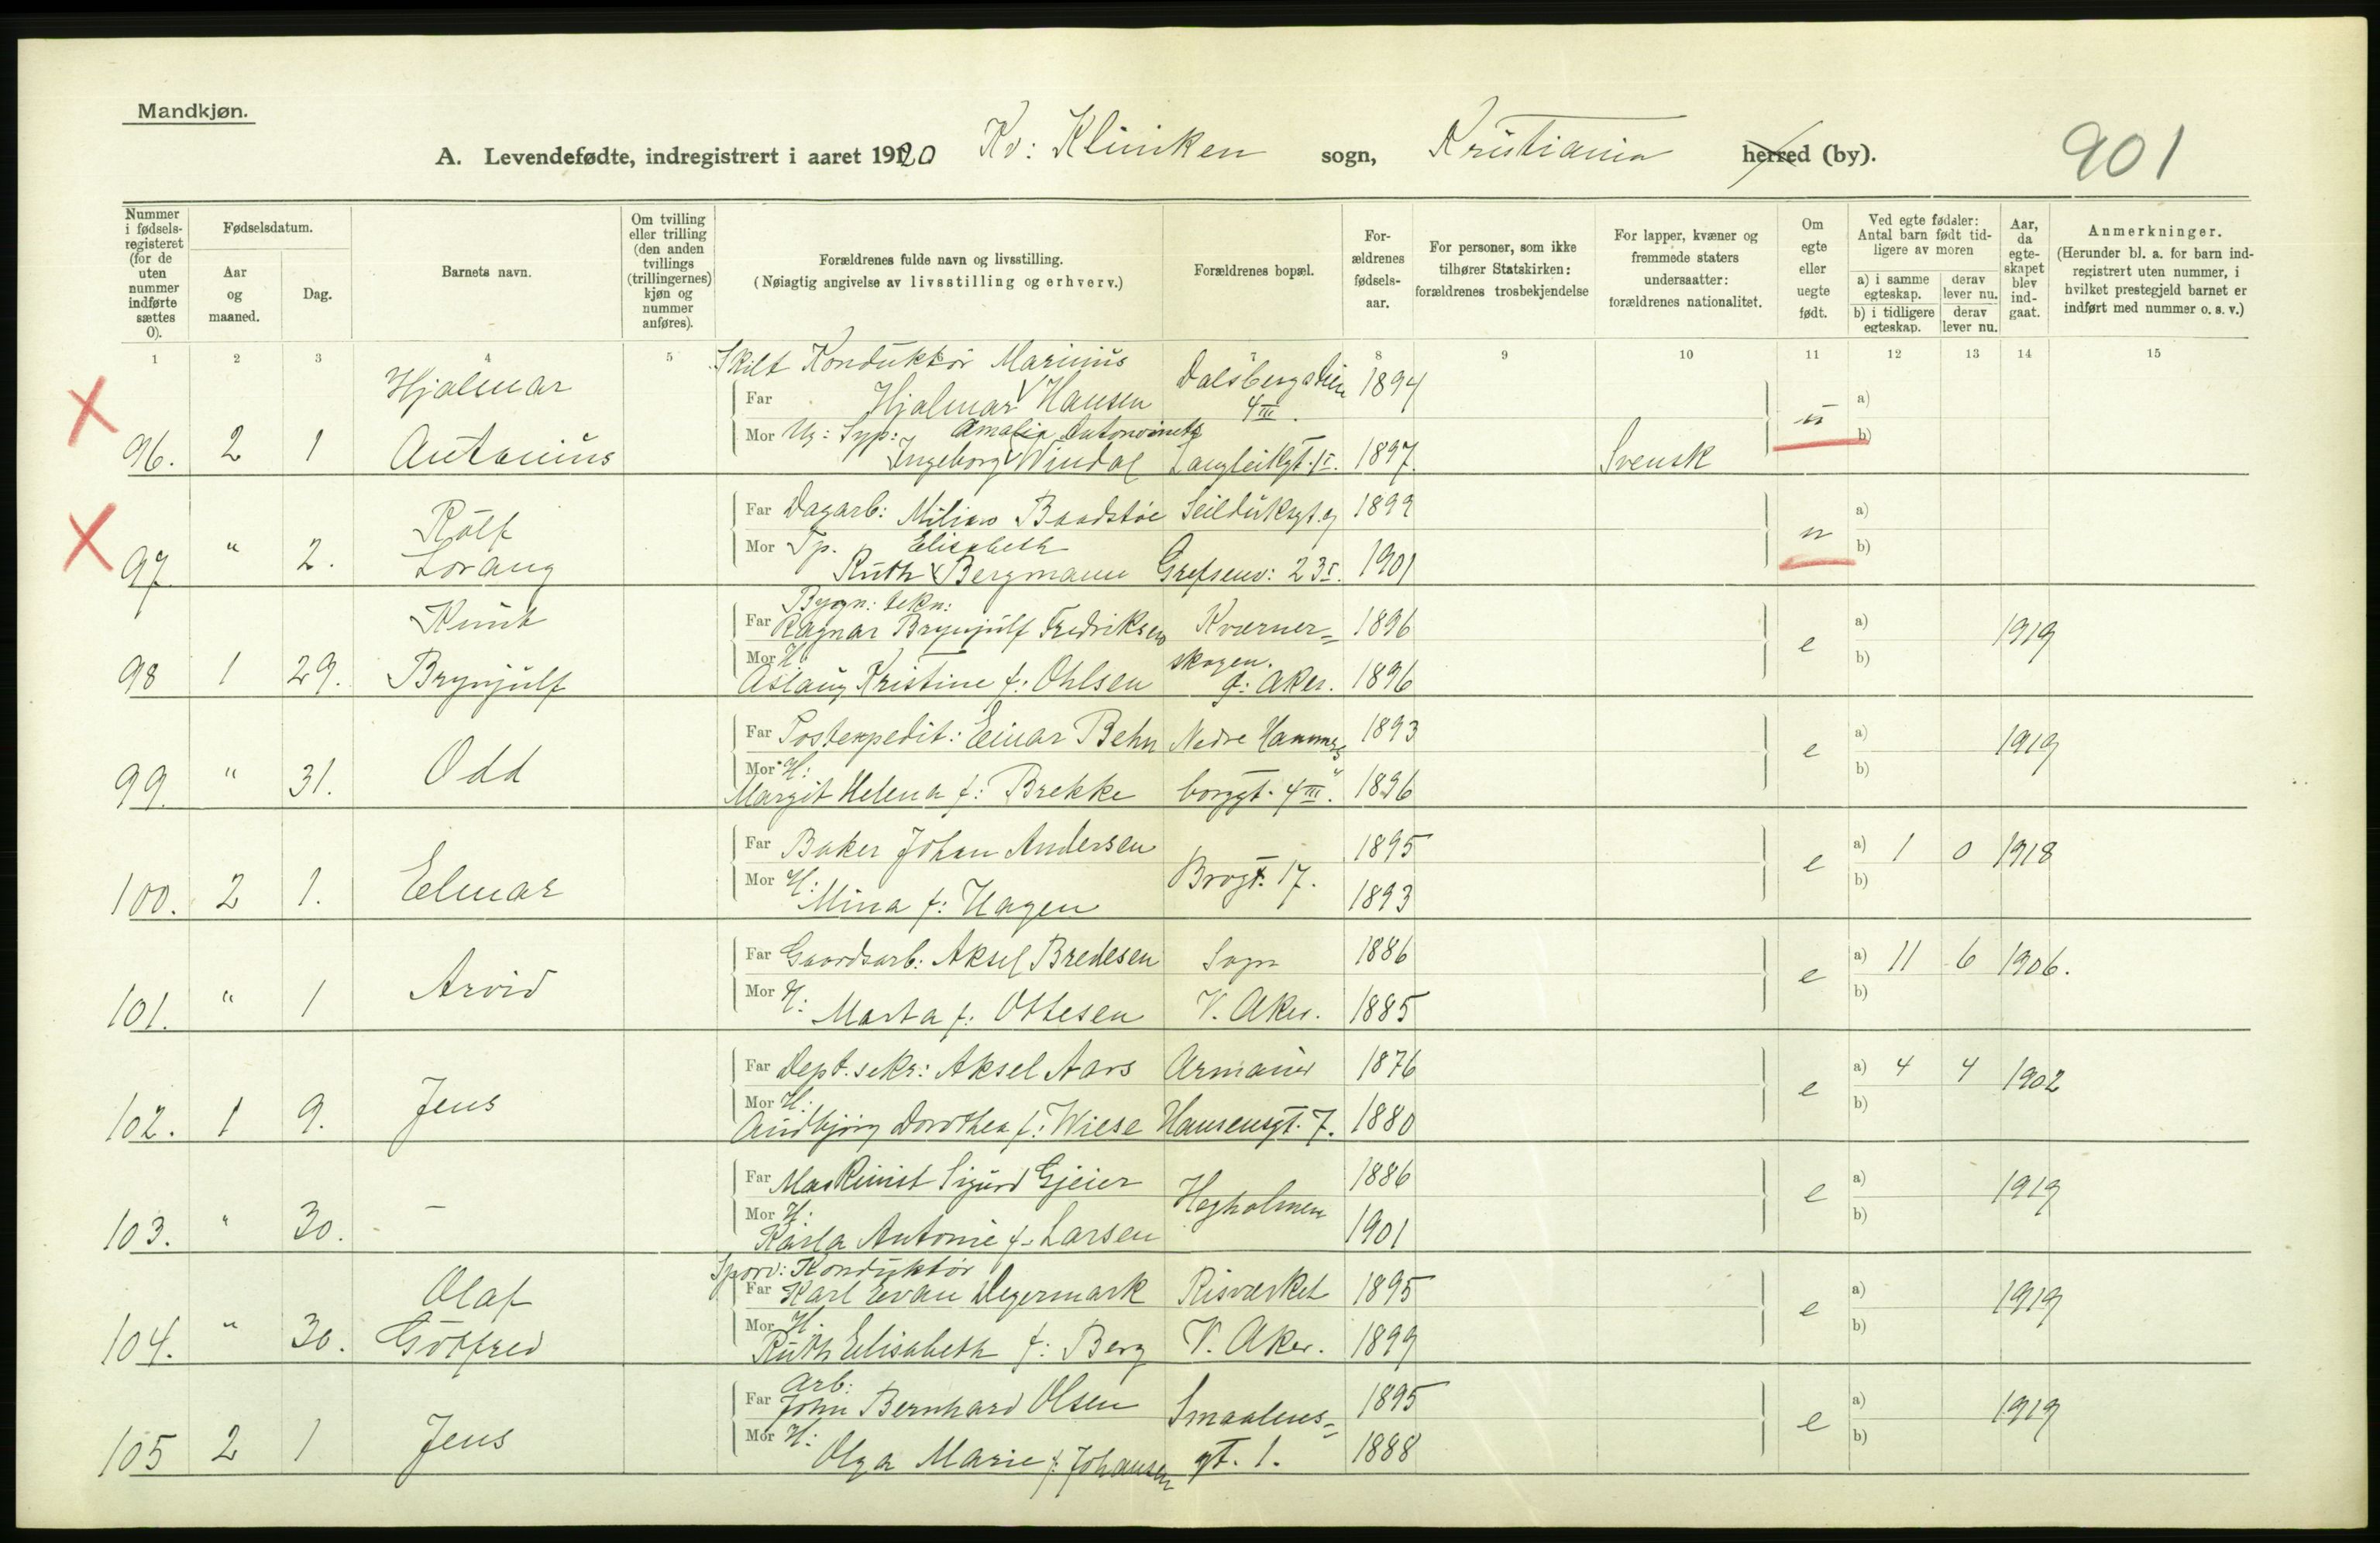 Mandkjøn.
A. Levendefødte, indregistrert i aaret 1920 Kv: Kliniken sogn, Kristiania herred (by). 901
Nummer i fødsels-registeret (for de uten nummer indførte sættes 0).
Fødselsdatum.
Aar og maaned.
Dag.
Barnets navn.
Om tvilling eller trilling (den anden tvillings (trillingernes) kjøn og nummer anføres).
Forældrenes fulde navn og livsstilling.
(Nøiagtig angivelse av livsstilling og erhverv.)
Forældrenes bopæl.
For-ældrenes fødsels-aar.
For personer, som ikke tilhører Statskirken: forældrenes trosbekjendelse
For lapper, kvæner og fremmede staters undersaatter: forældrenes nationalitet.
Om egte eller uegte født.
Ved egte fødsler: Antal barn født tid-ligere av moren
a) i samme egteskap. derav lever nu.
b) i tidligere egteskap. derav lever nu.
Aar, da egte-skapet blev ind-gaat.
Anmerkninger.
(Herunder bl. a. for barn ind-registrert uten nummer, i hvilket prestegjeld barnet er indført med nummer o. s. v.)
1 2 3 4 5 8 9 10 11 12 13 14 15
Skilt Konduktör Marinius
Hjalmar Far Hjalmar Hansen 4 III. 1894 u a)
Mor Ug: Syp: Amalia b)
96. 2 1 Antonius Ingeborg Windal 1 I. 1897. Svensk
Far Dagarb: Baadstøe Seilduksgt. 9 1899 a)
Rolf Mor Elisabeth u b)
97 " 2. Lorang Ruth Bergmann Grefsenv: 23 I. 1901
Bygn: tekn:
Knut Far Ragnar Brynjulf Fredriksen Kværner= 1896 e a) 1919
Mor H. skogen. b)
98 1 29. Brynjulf Aslaug Kristine f: Ohlsen Ø: Aker. 1896
Far Postexpedit: Einar Behn Nedre Hammers 1893 e a) 1919
Mor H: b)
99. " 31. Odd Margit Helena f: Brekke borggt. 4 III. 1896
Far Baker Johan Andersen 1895 e a) 1 0 1918
Mor H: Brogt. 17. b)
100. 2 1. Elmar Mina f: Hagen 1893
Far Gaardsarb: Aksel Bredesen Sogn 1886 e a) 11 6 1906.
Mor H: b)
101. " 1 Arvid Marta f: Ottesen V. Aker. 1885
Far Dept. sekr: Aksel Aars Armauer 1876 e a) 4 4 1902
Mor H: b)
102. 1 9. Jens Audbjörg Dorothea f: Wiese Hansensgt. 7. 1880
Far Maskinist Sigurd Gjeier 1886 e a) 1919
Mor H: Hegholmen b)
103. " 30. – Karla Antonie f. Larsen 1901
Sporv: Konduktör
Olaf Far Karl Evan Degermark Risværket 1895 e a) 1919
Mor H. b)
104. " 30. Gotfred Ruth Elisabeth f: Berg V. Aker. 1899
Arb:
Far John Bernhard Olsen Smaalens= 1895 e a) 1919
Mor H: b)
105 2 1 Jens Olga Marie f: Johansen gt. 1. 1888